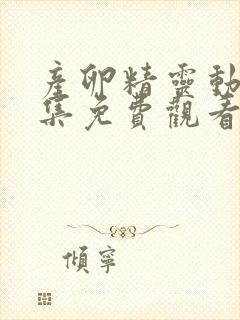 産卵精靈動
集免費觀看
傾寧